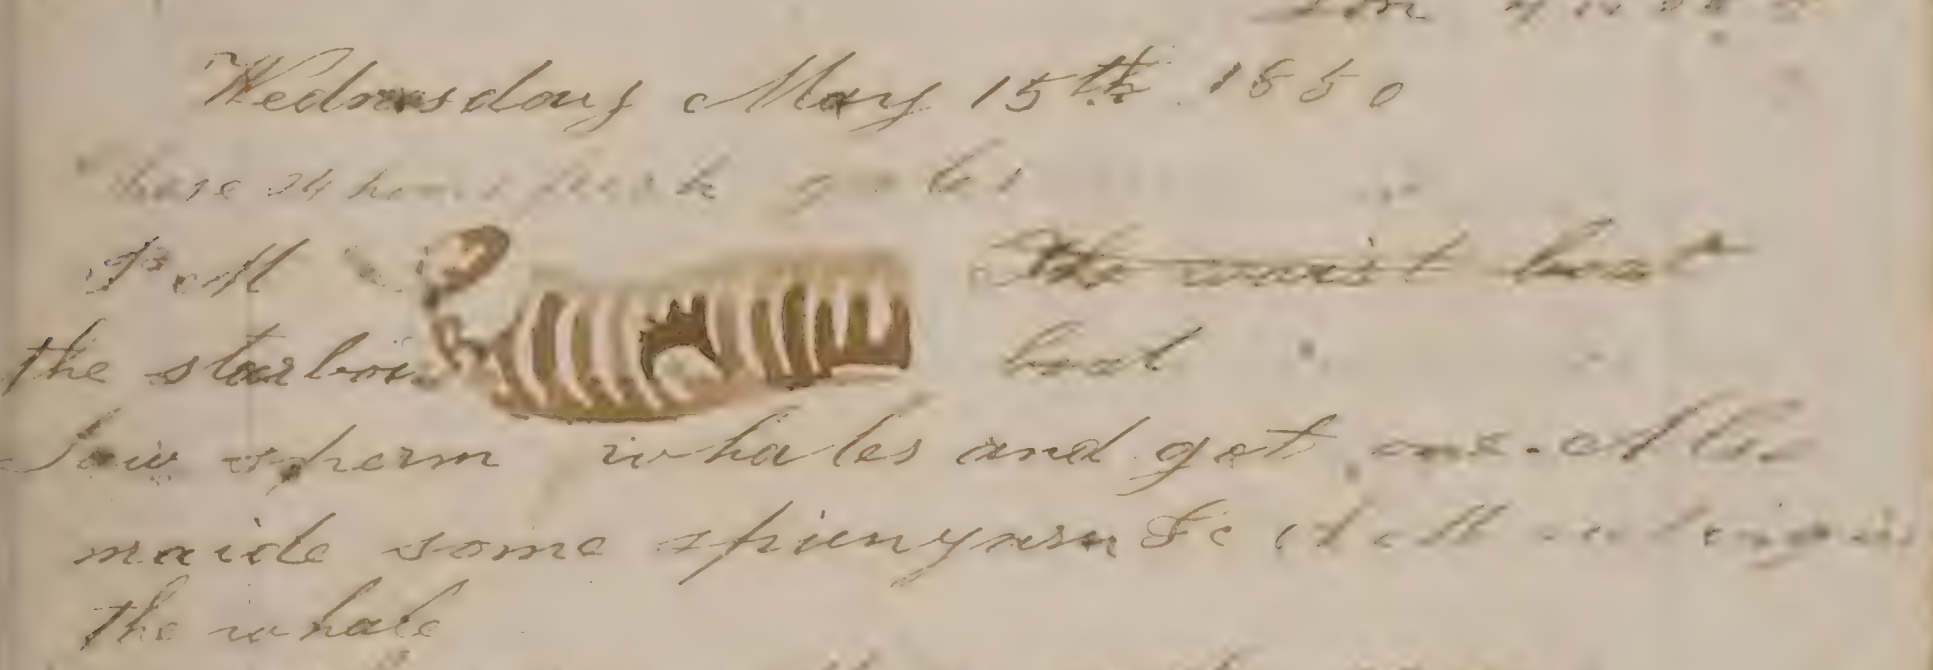 Wednesday May 15th 1850
These 24 hours fresh gales
P M The waist boat
the starboard boat
Saw sperm whales and got one. Also
maide some spunyarn &c
the whale